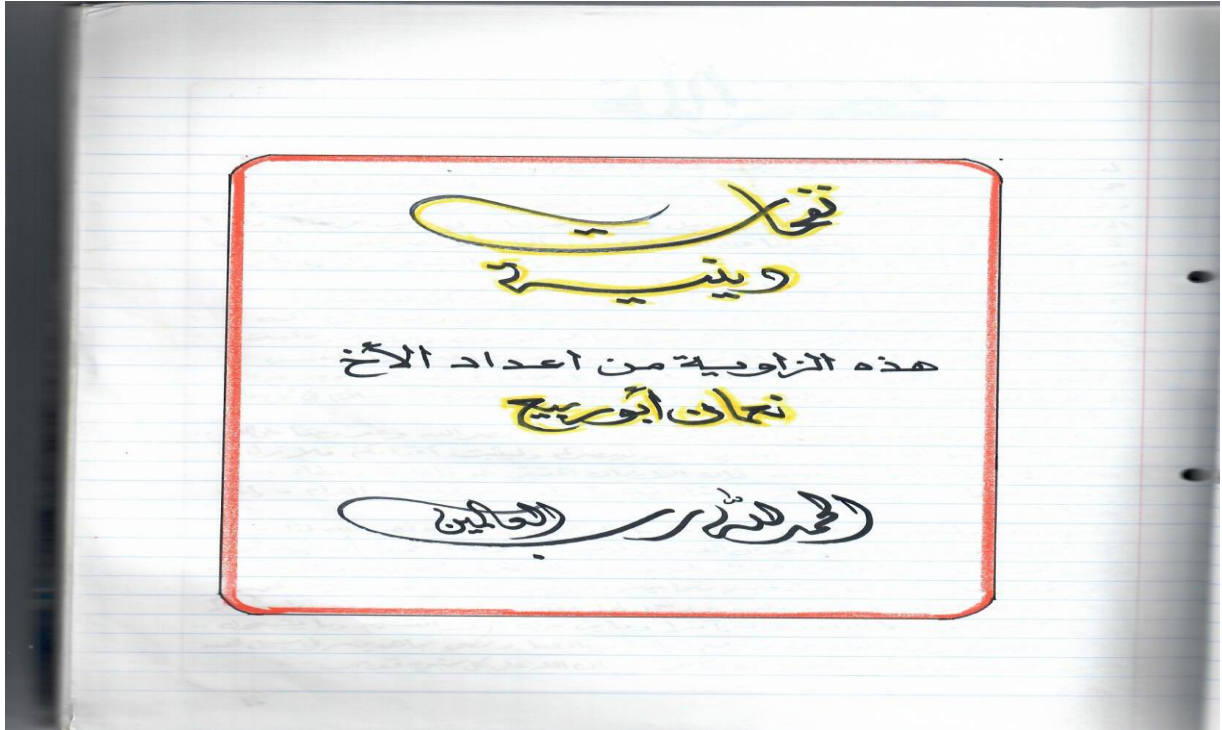 نفحات
دينية
هذه الزاوية من اعداد الأخ
نعمان أبو ربيع
الحمد لله رب العالمين